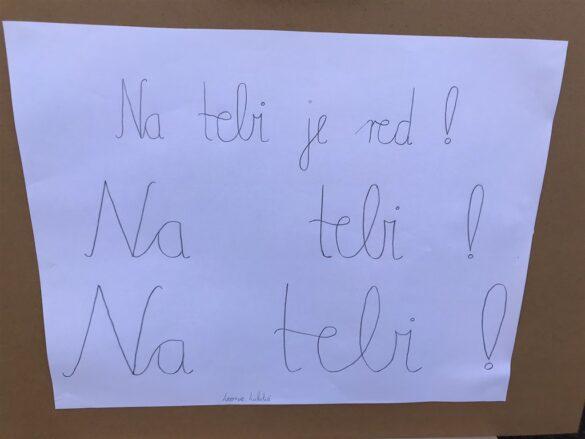 Na tebi je red!
Na tebi!
Na tebi!